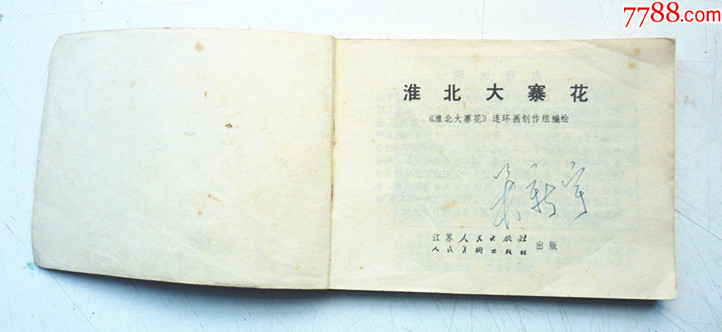 7788.com
淮北大寨花
《淮北大寨花》连环画创作组编绘
江苏人民出版社
人民美术出版社 出版